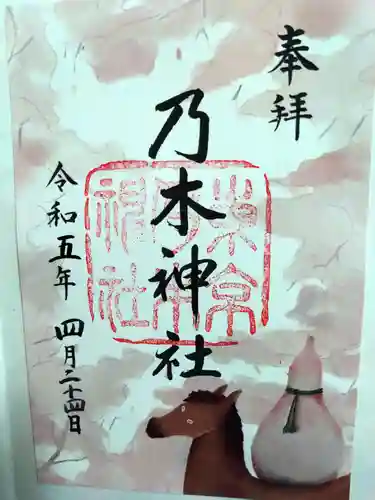 奉拝
乃木神社
令和五年 四月二十四日
東京
乃木
神社